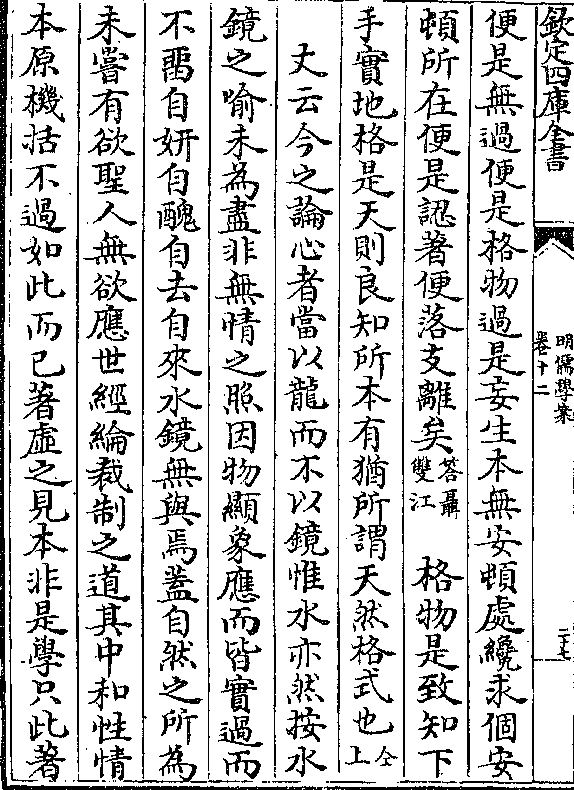 欽定四庫全書
明儒學案
卷十二
二十七
便是無過便是格物過是妄生本無安頓處纔求個安
頓所在便是認著便落支離矣答聶雙江　格物是致知下
手實地格是天則良知所本有猶所謂天然格式也仝上
丈云今之論心者當以龍而不以鏡惟水亦然按水
鏡之喻未為盡非無情之照因物顯象應而皆實過而
不畱自妍自醜自去自來水鏡無與焉葢自然之所為
未嘗有欲聖人無欲應世經綸裁制之道其中和性情
本原機括不過如此而已著虛之見本非是學只此著